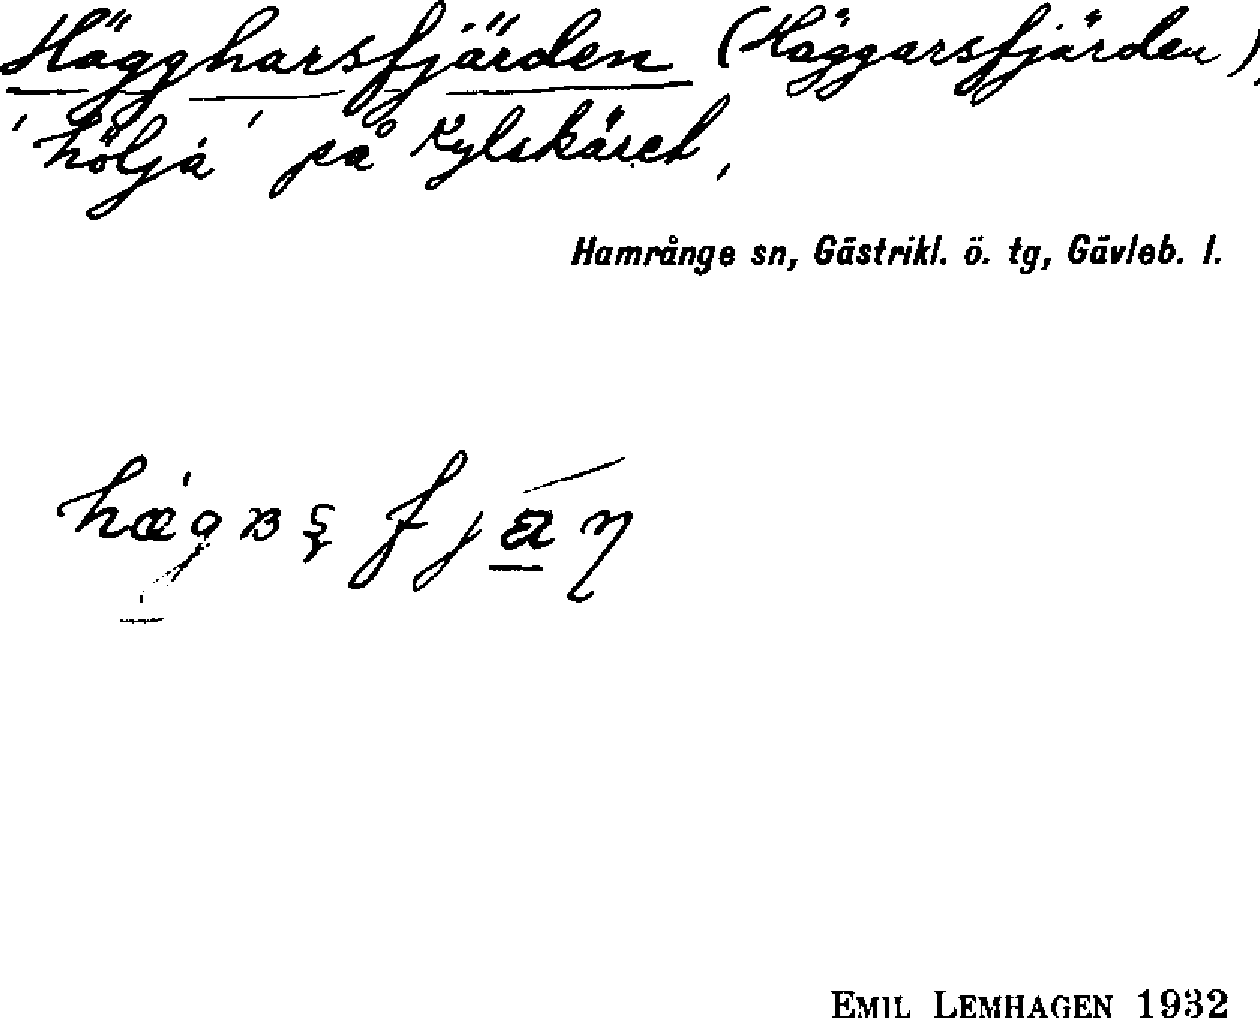 Häggharsfjärden (Häggarsfjärden),
'hölja' på Kylskäret,
Hamrånge sn, Gästrikl. ö. tg, Gävleb. l.
EMIL LEMHAGEN 1932